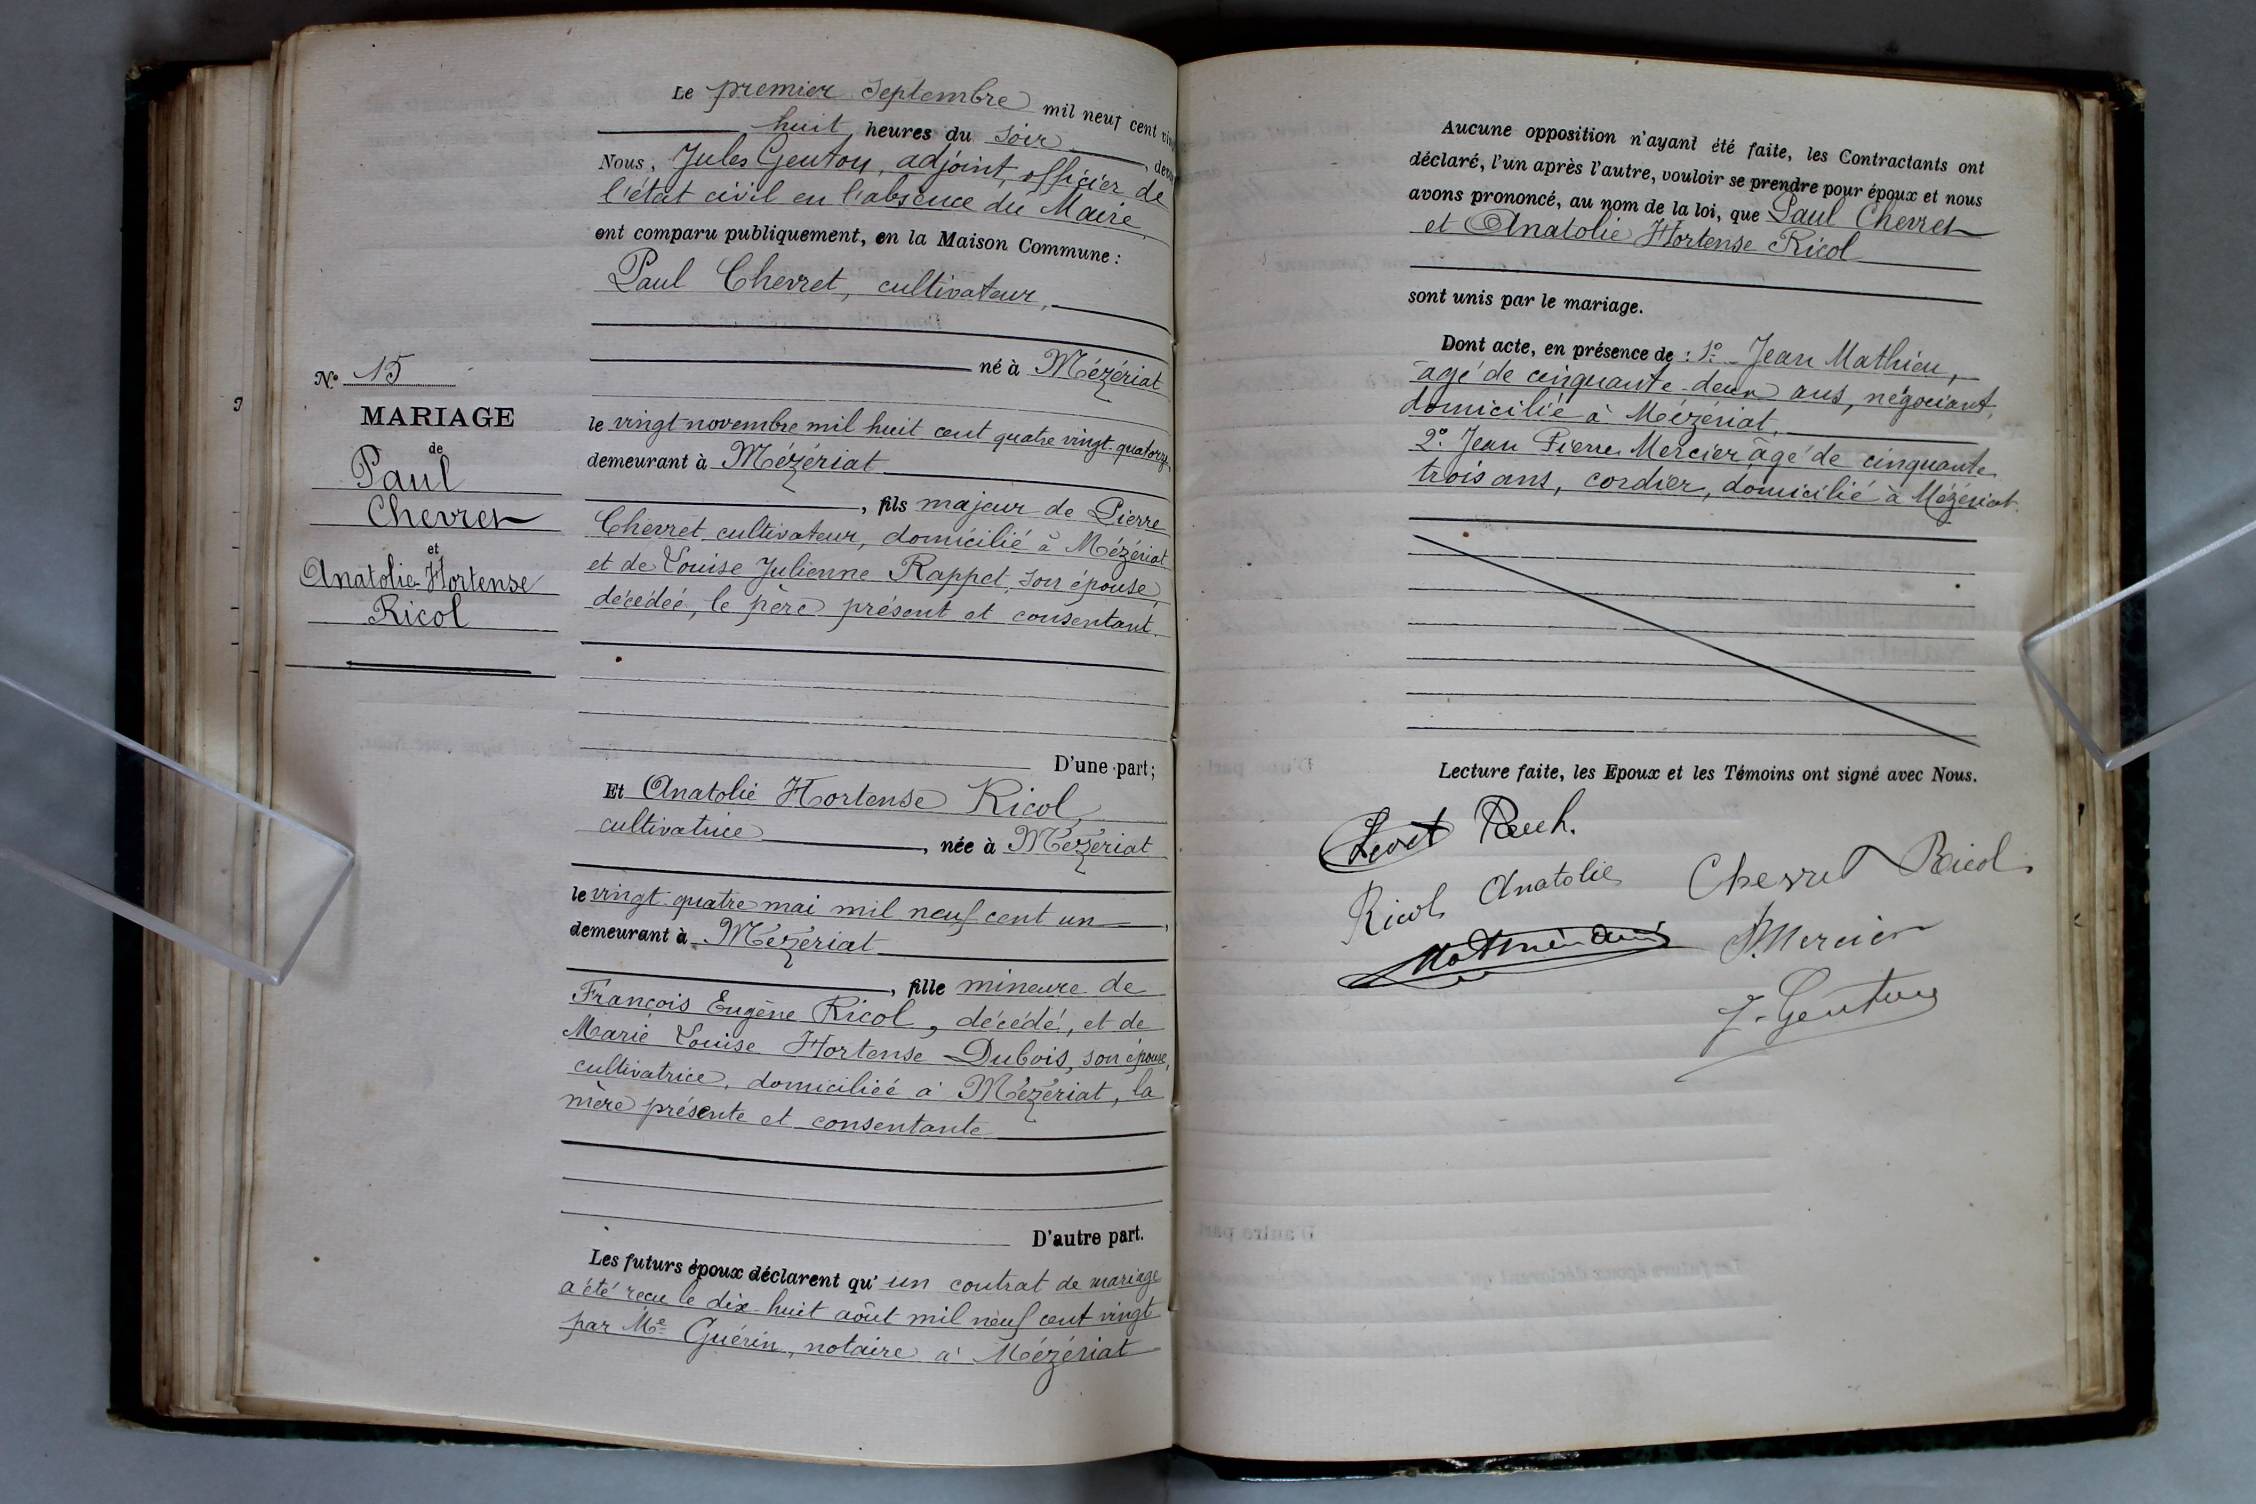 N° 15
MARIAGE
de
Paul
Chevret
et
Anatolie Hortense
Ricol
Le premier Septembre mil neuf cent
huit heures du soir
Nous, Jules Genton, adjoint, officier de
l'état civil en l'absence du Maire
ont comparu publiquement, en la Maison Commune :
Paul Chevret, cultivateur,
né à Mézériat
le vingt novembre mil huit cent quatre vingt quatorze
demeurant à Mézériat
, fils majeur de Pierre
Chevret, cultivateur, domicilié à Mézériat
et de Louise Julienne Rappet, son épouse,
décédée, le père présent et consentant.
D'une part ;
Et Anatolie Hortense Ricol,
cultivatrice, née à Mézériat
le vingt quatre mai mil neuf cent un,
demeurant à Mézériat
, fille mineure de
François Eugène Ricol, décédé, et de
Marie Louise Hortense Dubois, son épouse,
cultivatrice, domiciliée à Mézériat, la
mère présente et consentante
D'autre part.
Les futurs époux déclarent qu' un contrat de mariage
a été reçu le dix huit août mil neuf cent vingt
par Me Guérin, notaire à Mézériat
Aucune opposition n'ayant été faite, les Contractants ont
déclaré, l'un après l'autre, vouloir se prendre pour époux et nous
avons prononcé, au nom de la loi, que Paul Chevret
et Anatolie Hortense Ricol
sont unis par le mariage.
Dont acte, en présence de : 1° Jean Mathieu,
âgé de cinquante deux ans, négociant,
domicilié à Mézériat.
2° Jean Pierre Mercier âgé de cinquante
trois ans, cordier, domicilié à Mézériat.
Lecture faite, les Epoux et les Témoins ont signé avec Nous.
Ricol Anatolie Chevret Ricol
Mercier
J. Genton